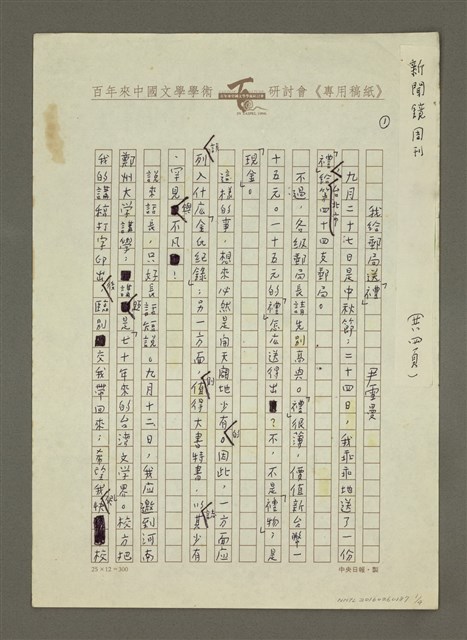 新聞鏡周刊
(共四頁)
百年來中國文學學術研討會《專用稿紙》
①
我給郵局送「禮」
尹雪曼
九月二十七日是中秋節；二十四日，我乖乖地送了一份
「禮」給台北市第四十四支郵局。
不過，各級郵局長請先別高興。「禮」很薄，價值新台幣一
十五元。一十五元的「禮」怎麼送得出？不，不是「禮物」；是
「現金」。
這樣的事，想來必然是開天闢地少有的。因此，一方面應
該列入什麼金氏紀錄；另一方面，則值得大書特書，以誌其少有
、罕見與不凡！
說來話長，只好長話短說。九月十二日，我應邀到河南
鄭州大学講學；講題是七十年來的台湾文学界。校方把
我的講稿打字印出後，臨別交我帶回來；希望我快快校
25×12=300
中央日報・製